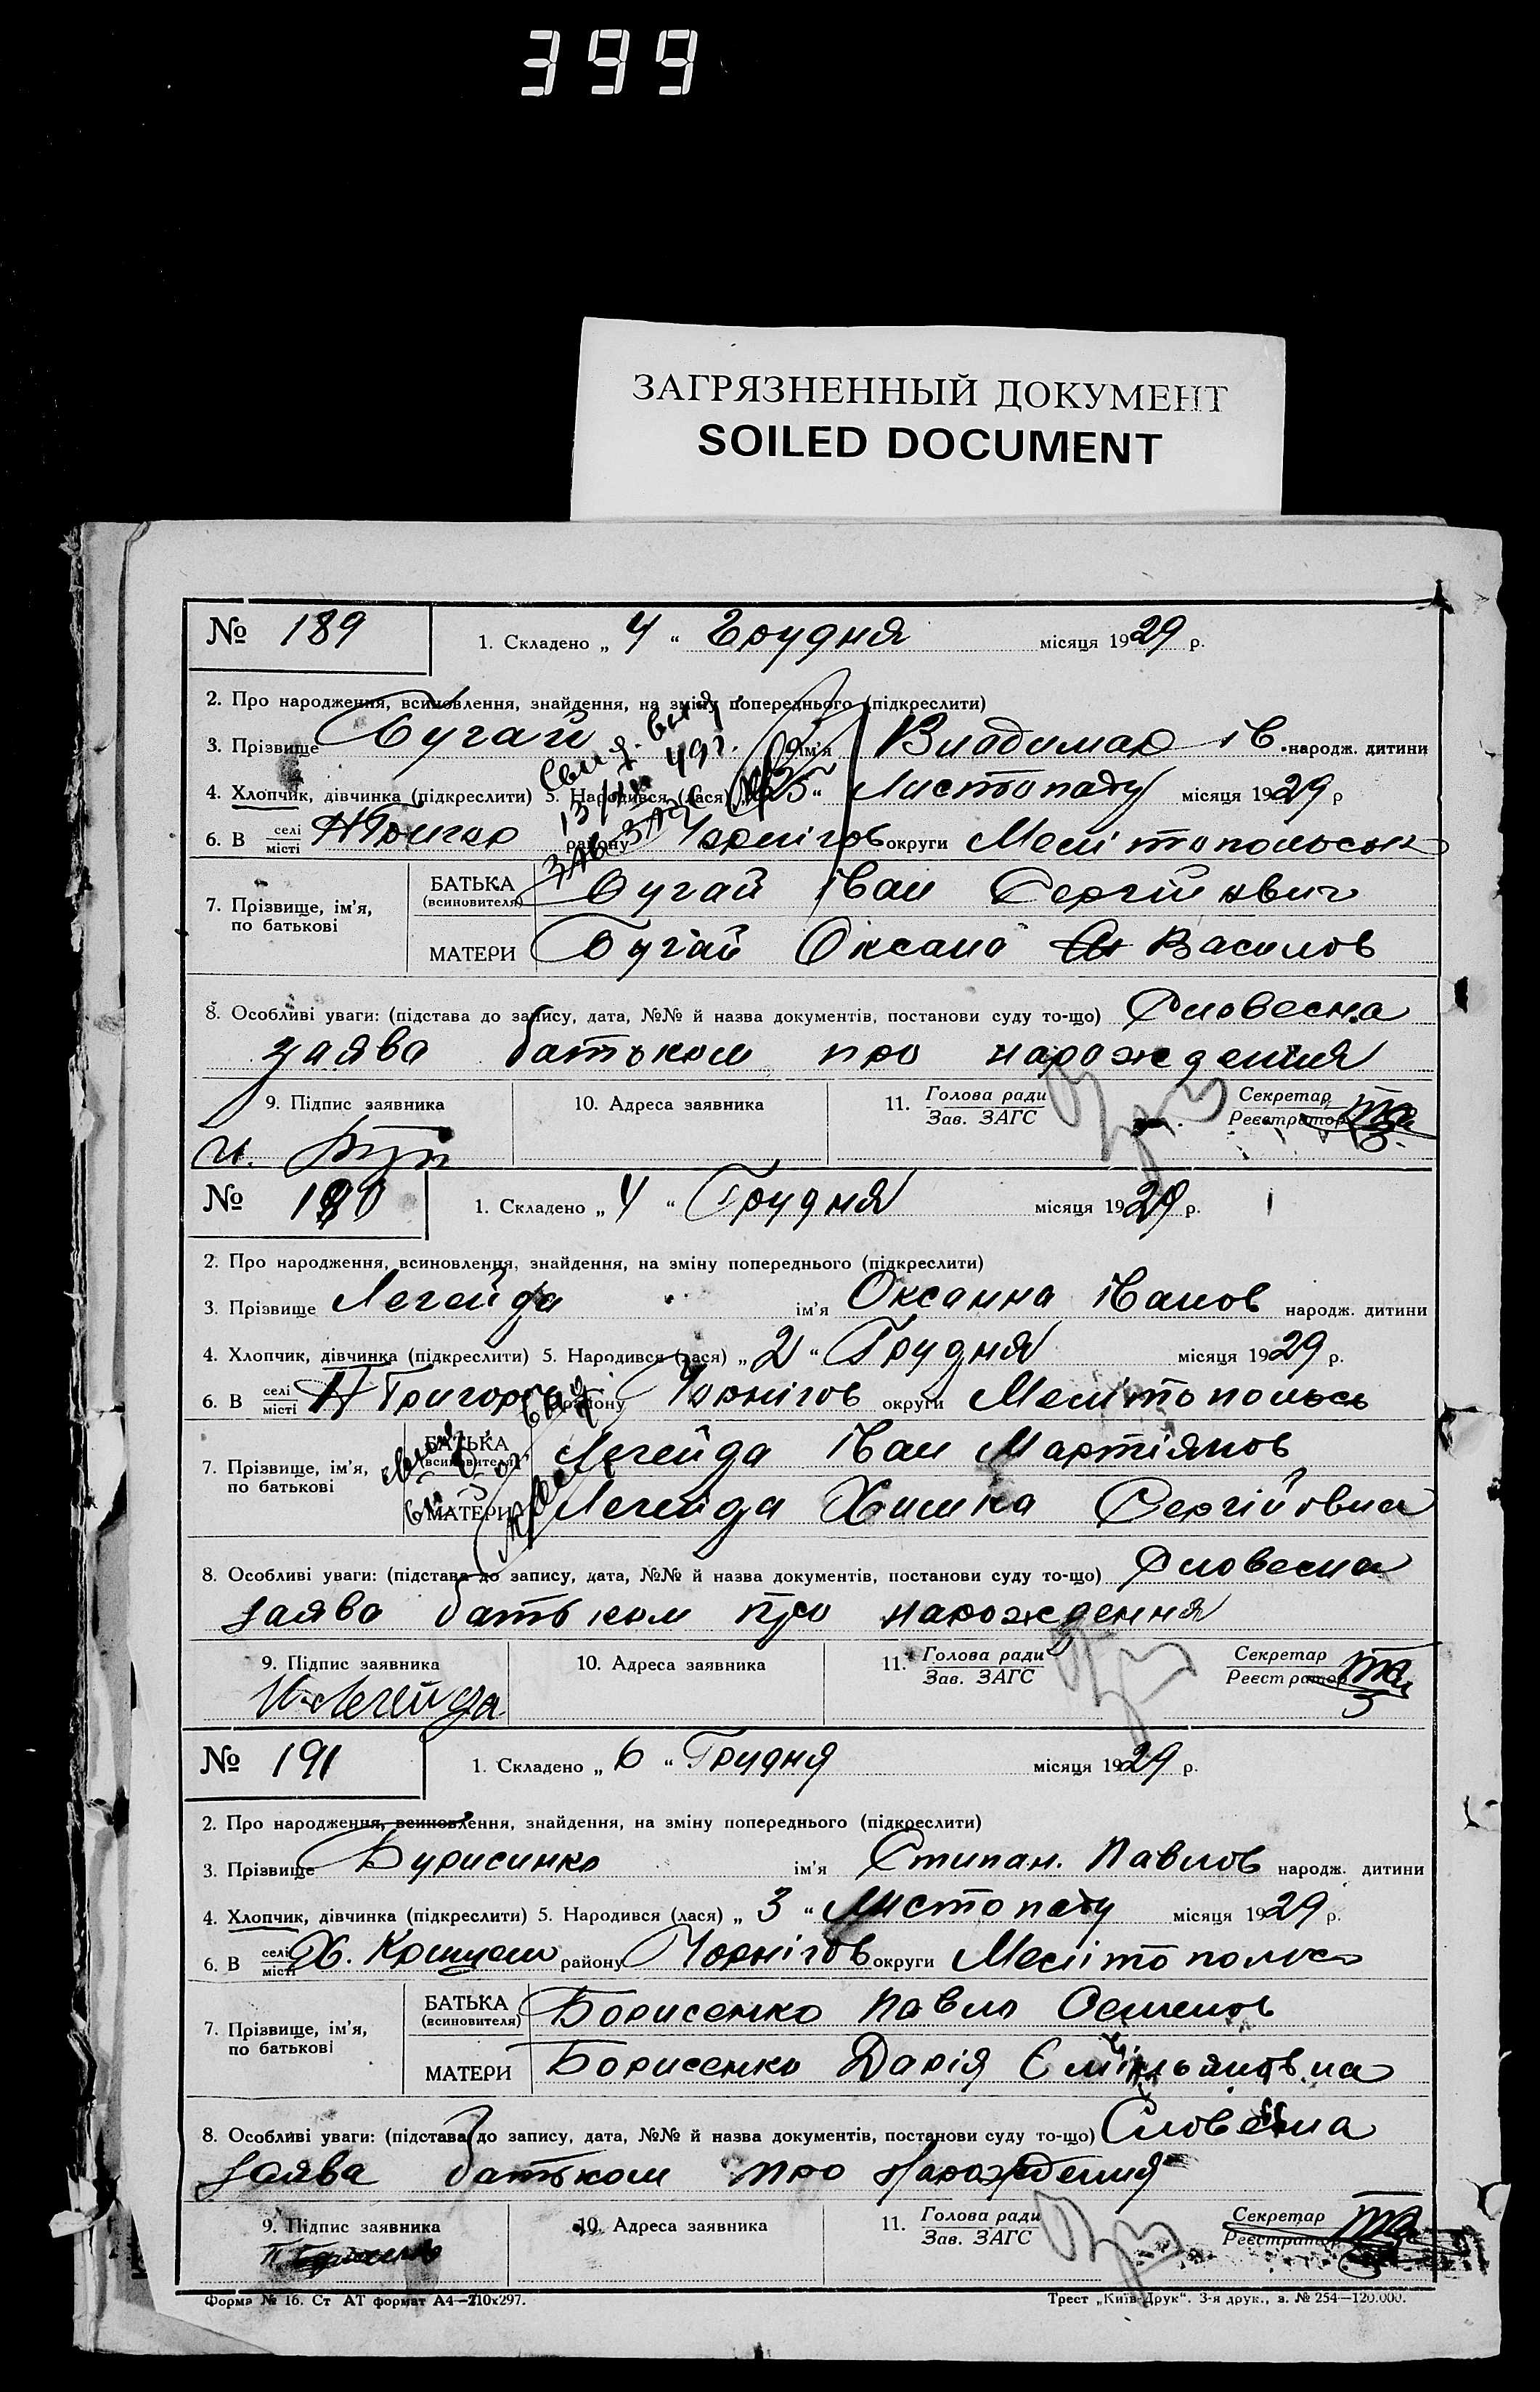 399
ЗАГРЯЗНЕННЫЙ ДОКУМЕНТ
SOILED DOCUMENT
№ 189 1. Складено „ 4 “ Грудня місяця 1929 р.
2. Про народження, всиновлення, знайдення, на зміну попереднього (підкреслити)
3. Прізвище Бугай ім'я Владимар ів. народж. дитини
4. Хлопчик, дівчинка (підкреслити) 5. Народився (лася) „ 25 “ Листопаду місяця 1929 р
6. В селі місті району Чорнігов округи Мелітопольськ
7. Прізвище, ім'я, по батькові БАТЬКА (всиновителя) Бугай Іван Сергійович
МАТЕРИ Бугай Оксана Василов
8. Особливі уваги: (підстава до запису, дата, №№ й назва документів, постанови суду то-що) Словесна
заява батьком про народження
9. Підпис заявника 10. Адреса заявника 11. Голова ради Зав. ЗАГС Секретар Реєстратор
№ 190 1. Складено „ 4 “ Грудня місяця 1929 р.
2. Про народження, всиновлення, знайдення, на зміну попереднього (підкреслити)
3. Прізвище Легейда ім'я Оксанна Іванов народж. дитини
4. Хлопчик, дівчинка (підкреслити) 5. Народився (лася) „ 2 “ Грудня місяця 1929 р.
6. В селі місті Н Григор району Чорнігов округи Мелітопольсь
7. Прізвище, ім'я, по батькові БАТЬКА (всиновителя) Легейда Іван Мартіянов
МАТЕРИ Легейда Химка Сергійовна
8. Особливі уваги: (підстава до запису, дата, №№ й назва документів, постанови суду то-що) Словесна
заява батьком про народження
9. Підпис заявника 10. Адреса заявника 11. Голова ради Зав. ЗАГС Секретар Реєстратор
И Легейда
№ 191 1. Складено „ 6 “ Грудня місяця 1929 р.
2. Про народження, всиновлення, знайдення, на зміну попереднього (підкреслити)
3. Прізвище Бурисинко ім'я Стипан. Павлов народж. дитини
4. Хлопчик, дівчинка (підкреслити) 5. Народився (лася) „ 3 “ Листопаду місяця 1929 р.
6. В селі місті Х. району Чорнігов округи Мелітопольс
7. Прізвище, ім'я, по батькові БАТЬКА (всиновителя) Борисенко Павло Семенов
МАТЕРИ Борисенко Дарія Омільяновна
8. Особливі уваги: (підстава до запису, дата, №№ й назва документів, постанови суду то-що) Словесна
заява батьком про нарождения
9. Підпис заявника 10. Адреса заявника 11. Голова ради Зав. ЗАГС Секретар Реєстратор
Форма № 16. Ст АТ формат А4—210х297. Трест „Київ-Друк“. 3-я друк., з. № 254—120.000.